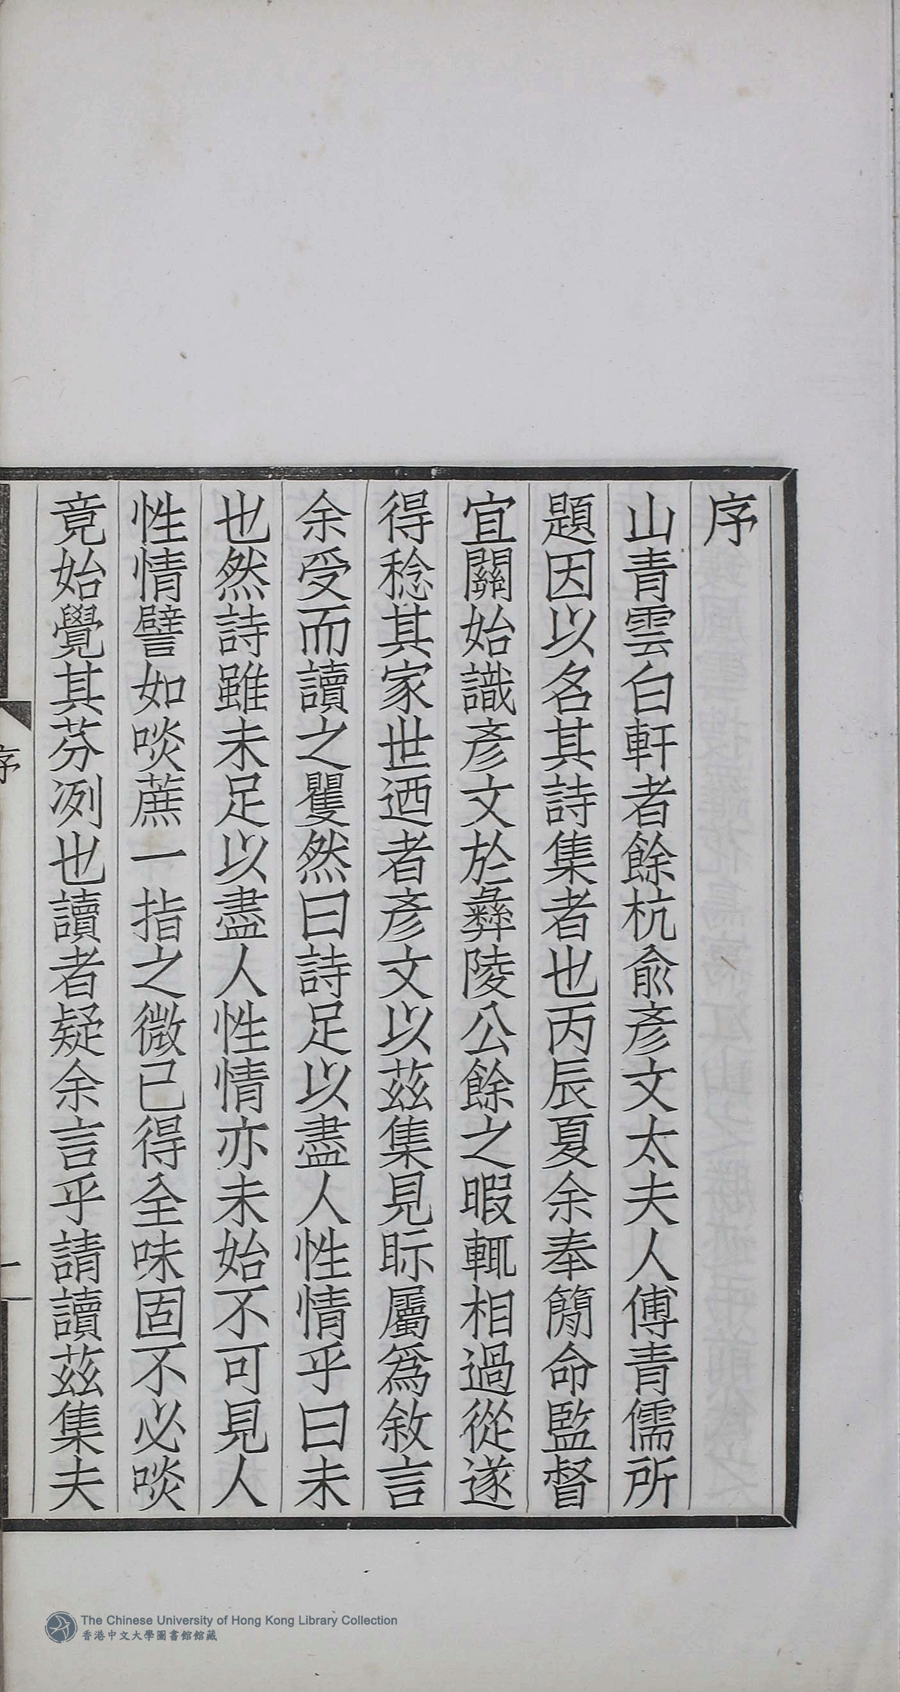 序
山青雲白軒者餘杭俞彥文太夫人傅青儒所
題因以名其詩集者也丙辰夏余奉簡命監督
宜關始識彥文於彝陵公餘之暇輒相過從遂
得稔其家世迺者彥文以茲集見眎屬爲敘言
余受而讀之瞿然曰詩足以盡人性情乎曰未
也然詩雖未足以盡人性情亦未始不可見人
性情譬如啖蔗一指之微已得全味固不必啖
竟始覺其芬冽也讀者疑余言乎請讀茲集夫
序
一
The Chinese University of Hong Kong Library Collection
香港中文大學圖書館館藏